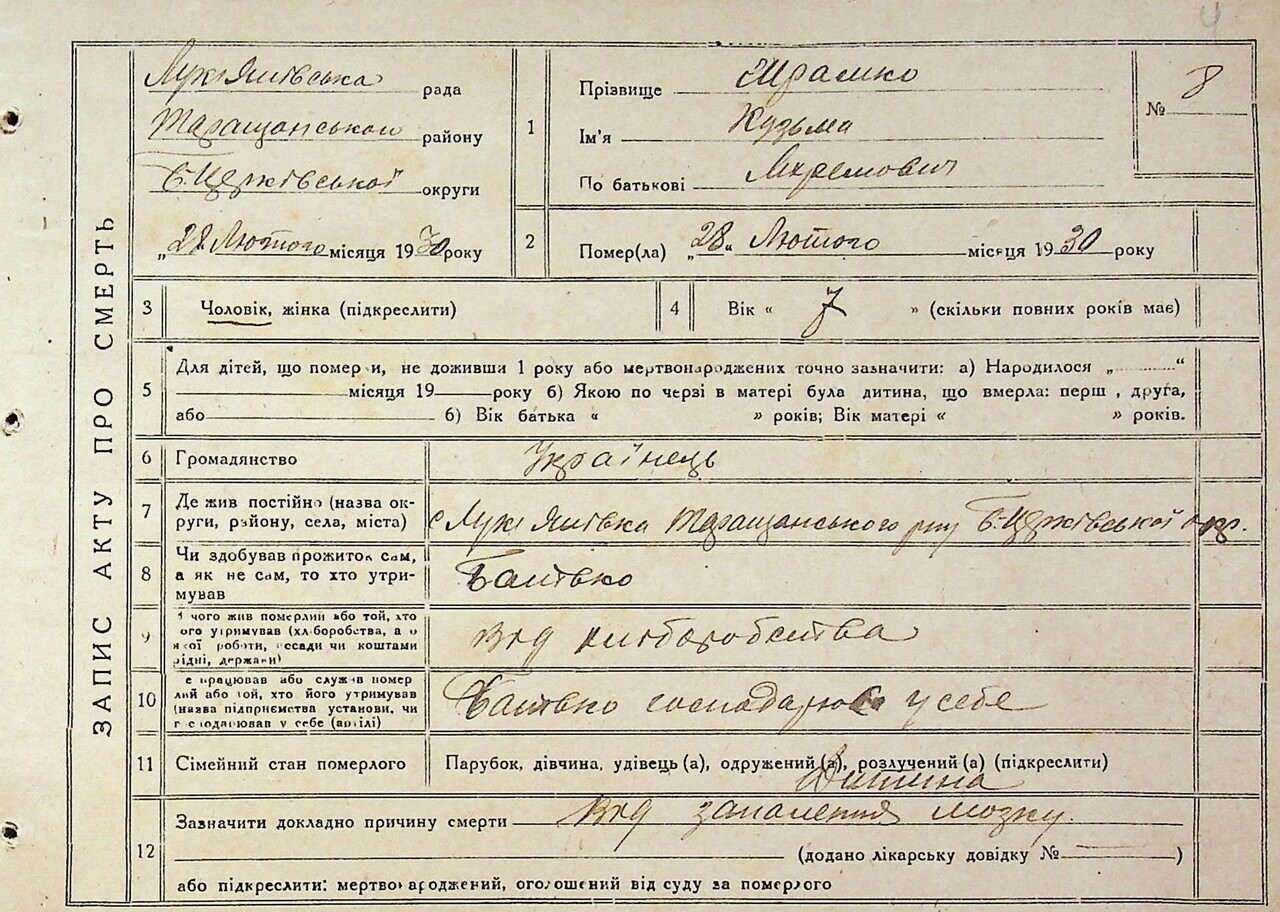 ЗАПИС АКТУ ПРО СМЕРТЬ
Лук'янівська рада
Таращанського району
Б-Церківської округи
„28 Лютого місяця 1930 року
1
Прізвище Шрамко
Ім'я Кузьма
По батькові Яхремович
№ 8
2 Помер(ла) „28“ Лютого місяця 1930 року
3 Чоловік, жінка (підкреслити)
4 Вік « 7 » (скільки повних років має)
5
Для дітей, що померли, не доживши 1 року або мертвонароджених точно зазначити: а) Народилося „ “
місяця 19 року б) Якою по черзі в матері була дитина, що вмерла: перша, друга,
або б) Вік батька « » років; Вік матері « » років.
6 Громадянство Українець
7
Де жив постійно (назва ок-
руги, району, села, міста) с Лук'янівка Таращанського р-ну Б-Церківської окр.
8
Чи здобував прожиток сам,
а як не сам, то хто утри-
мував Батько
9
З чого жив померлий або той, хто
його утримував (хліборобства, а о
якої роботи, посади чи коштами
рідні, держави) Від хліборобства
10
Де працював або служив помер
лий або той, хто його утримував
(назва підприємства установи, чи
господарював у себе (артілі) Батько господарює у себе
11 Сімейний стан померлого Парубок, дівчина, удівець (а), одружений (а), розлучений (а) (підкреслити)
Дитина
12
Зазначити докладно причину смерти Від запалення мозку.
(додано лікарську довідку № )
або підкреслити: мертвонароджений, оголошений від суду за померлого